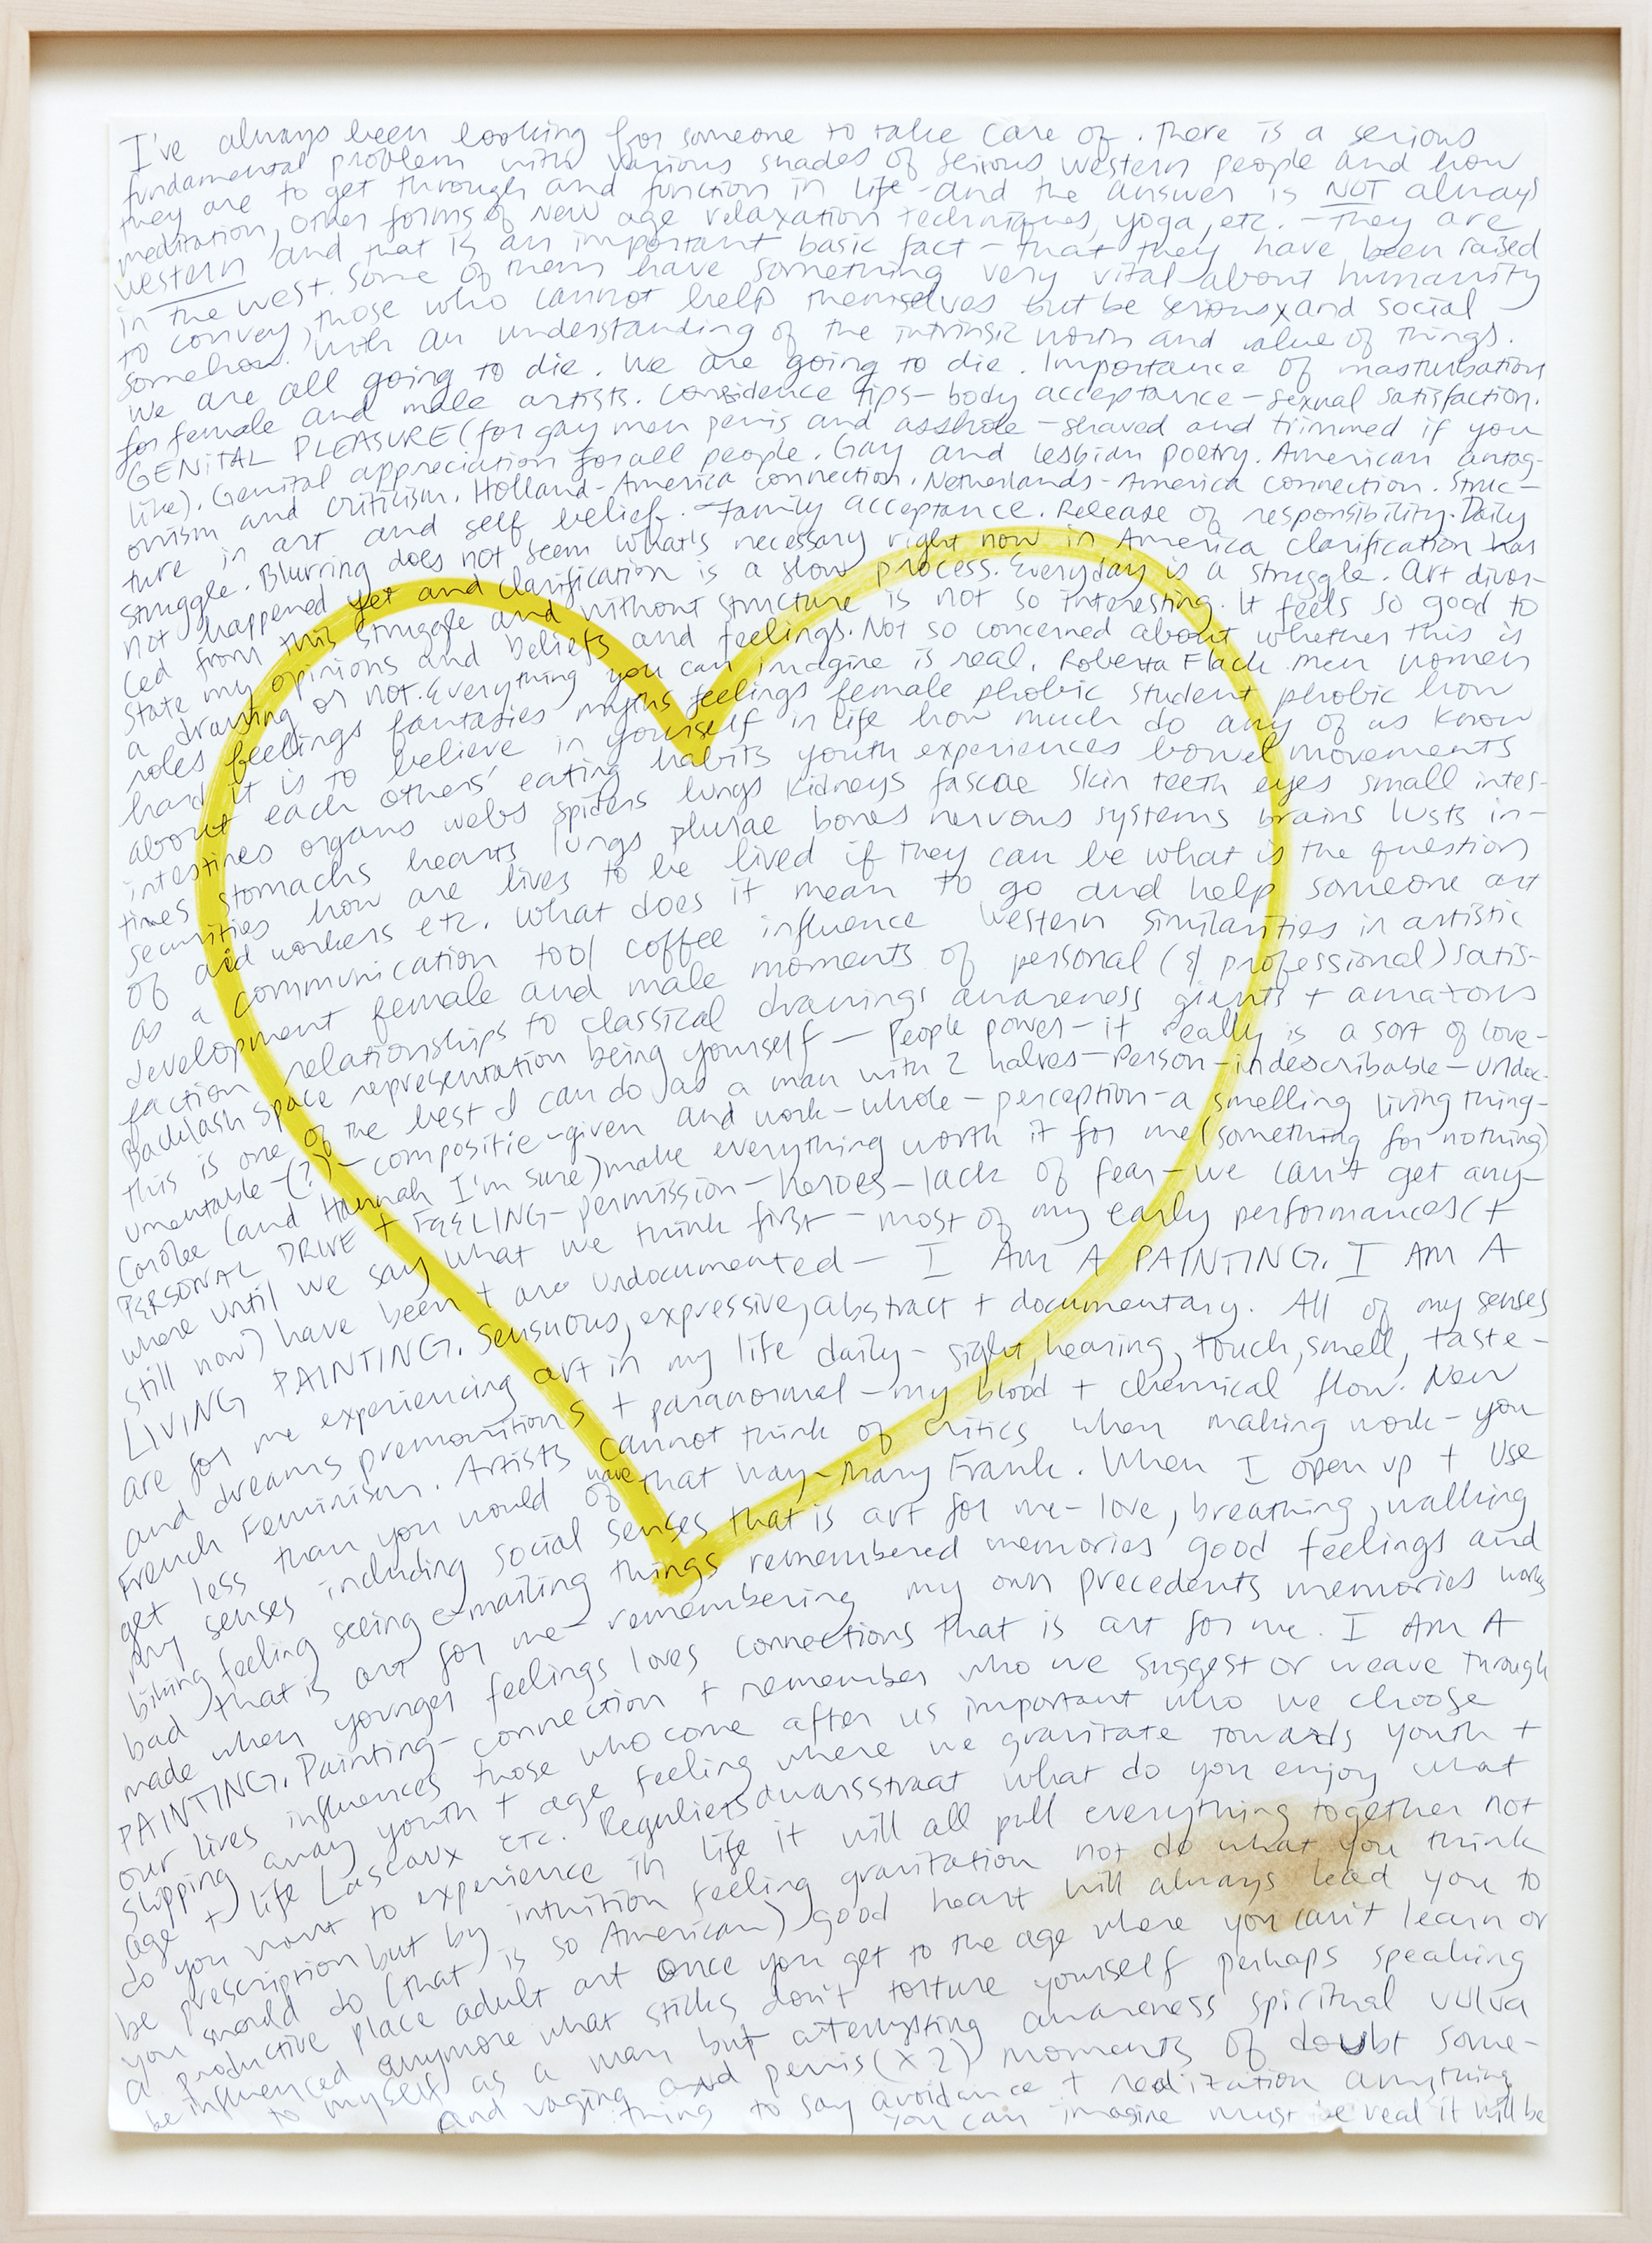 I've always been looking for someone to take care of. There is a serious
fundamental problem with various shades of serious western people and how
they are to get through and function in life – and the answer is NOT always
meditation, other forms of New age relaxation techniques, yoga, etc. – They are
western and that is an important basic fact – that they have been raised
in the west. Some of them have something very vital about humanity
to convey, those who cannot help themselves but be serious x and social –
somehow. With an understanding of the intrinsic worth and value of things.
We are all going to die. We are going to die. Importance of masturbation
for female and male artists. Confidence tips – body acceptance – sexual satisfaction.
GENITAL PLEASURE (for gay men penis and asshole – shaved and trimmed if you
like). Genital appreciation for all people. Gay and lesbian poetry. American antag-
onism and criticism. Holland-America connection. Netherlands-America connection. Struc-
ture in art and self belief. – Family acceptance. Release of responsibility. Daily
struggle. Blurring does not seem what's necessary right now in America clarification has
not happened yet and clarification is a slow process. Everyday is a struggle. Art divor-
ced from this struggle and without structure is not so interesting. It feels so good to
state my opinions and beliefs and feelings. Not so concerned about whether this is
a drawing or not. Everything you can imagine is real. Roberta Flack men women
roles feelings fantasies myths feelings female phobic student phobic how
hard it is to believe in yourself in life how much do any of us know
about each others' eating habits youth experiences bowel movements
intestines organs webs spiders lungs kidneys fascae skin teeth eyes small intes-
tines stomachs hearts lungs plurae bones nervous systems brains lusts in-
securities how are lives to be lived if they can be what is the question
of aid workers etc. What does it mean to go and help someone art
as a communication tool coffee influence western similarities in artistic
development female and male moments of personal (& professional) satis-
faction relationships to classical drawings awareness giants + amazons
Backlash space representation being yourself – People power – it really is a sort of love –
this is one of the best I can do as a man with 2 halves – Person – indescribable – undoc-
umentable – (?) – compositie – given and work – whole – perception – a smelling living thing –
Carolee (and Hannah I'm sure) make everything worth it for me (something for nothing)
PERSONAL DRIVE + FEELING – permission – heroes – lack of fear – we can't get any-
where until we say what we think first – most of my early performances (+
still now) have been + are undocumented – I AM A PAINTING. I AM A
LIVING PAINTING. Sensuous, expressive, abstract + documentary. All of my senses
are for me experiencing art in my life daily – sight, hearing, touch, smell, taste –
and dreams premonitions + paranormal – my blood + chemical flow. New
French Feminism. Artists cannot think of critics when making work – you
get less than you would of have that way – Mary Frank. When I open up + use
my senses including social senses that is art for me – love, breathing, walking
biking feeling seeing e-mailing things remembered memories good feelings and
bad that is art for me – remembering my own precedents memories works
made when younger feelings loves connections that is art for me. I AM A
PAINTING. Painting – connection + remember who we suggest or weave through
our lives influences those who come after us important who we choose
slipping away youth + age feeling where we gravitate towards youth +
age + life Lascaux etc. Reguliersdwarsstraat what do you enjoy what
do you want to experience in life it will all pull everything together not
be prescription but by intuition feeling gravitation not do what you think
you should do (that is so American) good heart will always lead you to
a productive place adult art once you get to the age where you can't learn or
be influenced anymore what sticks don't torture yourself perhaps speaking
to myself as a man but attempting awareness spiritual vulva
and vagina and penis (x2) moments of doubt some-
thing to say avoidance + realization anything
you can imagine must be real it will be